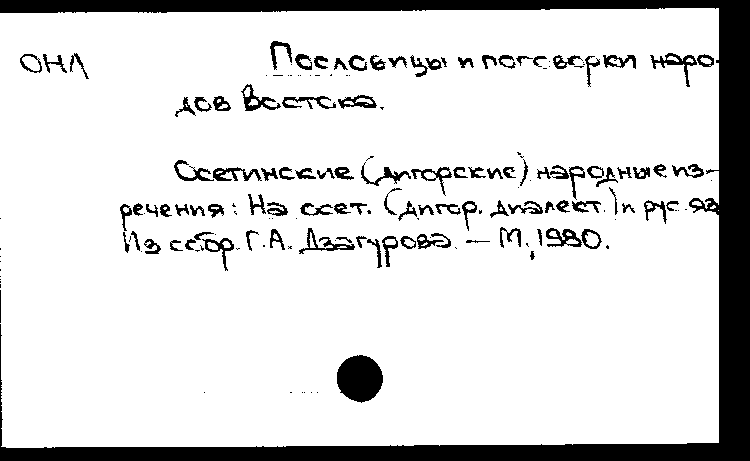 ОНЛ
Пословицы и поговорки наро-
дов Востока.
Осетинские (дигорские) народные из-
речения: На осет. (дигор. диалект.) и рус яз
Из собр. Г.А. Дзагурова. — М., 1980.